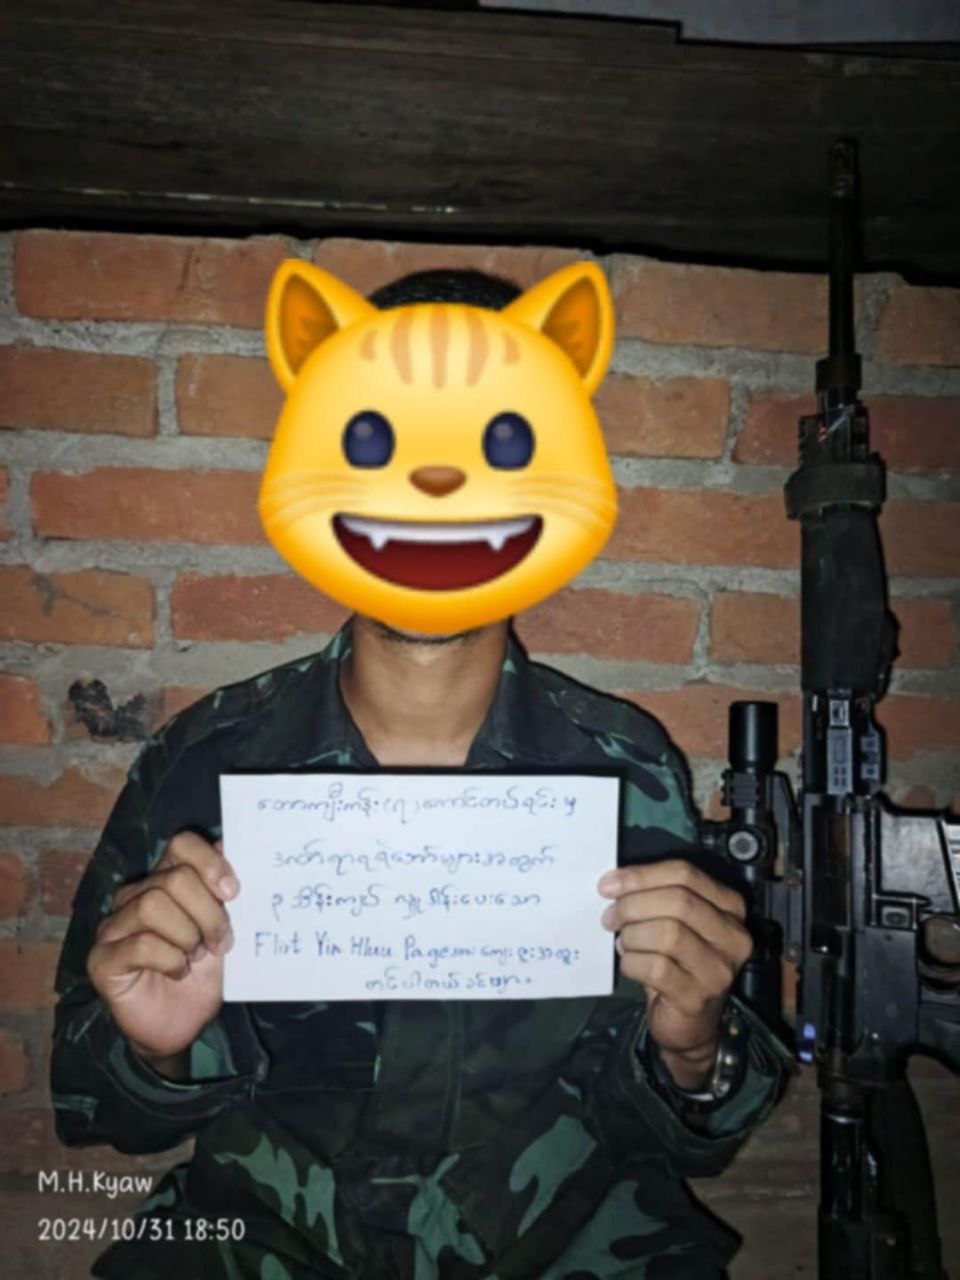 တောကျီးကန်း(ရ)ကောင်တယ်ရင်း မှ
ဒဏ်ရာရရဲဘော်များအတွက်
၃ သိန်းကျပ် လှူဒါန်းပေးသော
Flirt Yin Hluu Page အား ကျေးဇူးအထူး
တင်ပါတယ်ခင်ဗျာ။
M.H.Kyaw
2024/10/31 18:50